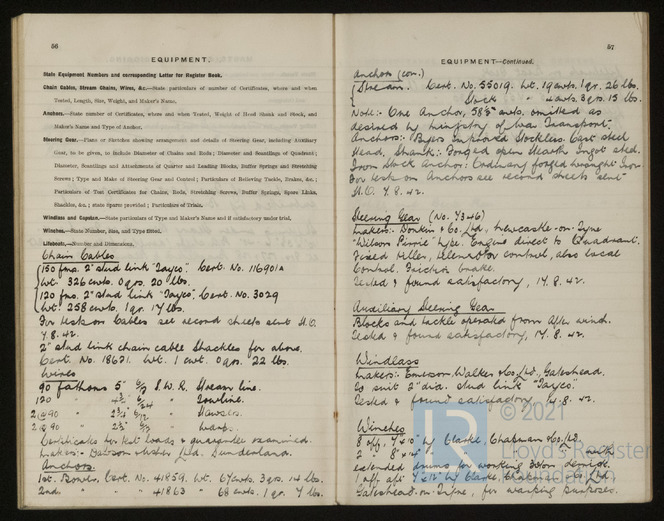 56
EQUIPMENT.
State Equipment Numbers and corresponding Letter for Register Book.
Chain Cables, Stream Chains, Wires, &c.—State particulars of number of Certificates, where and when
Tested, Length, Size, Weight, and Maker's Name.
Anchors.—State number of Certificates, where and when Tested, Weight of Head Shank and Stock, and
Maker's Name and Type of Anchor.
Steering Gear.—Plans or Sketches showing arrangements and details of Steering Gear, including Auxiliary
Gear, to be given, to include Diameter of Chains and Rods; Diameter and Scantlings of Quadrant;
Diameter, Scantlings and Attachments of Quarter and Leading Blocks, Buffer Springs and Stretching
Screws; Type and Make of Steering Gear and Control; Particulars of Relieving Tackle, Brakes, &c.;
Particulars of Test Certificates for Chains, Rods, Stretching Screws, Buffer Springs, Spare Links,
Shackles, &c.; state spares provided; Particulars of Trials.
Windlass and Capstan.—State particulars of Type and Maker's Name and if satisfactory under trial.
Winches.—State Number, Size, and Type fitted.
Lifeboats.—Number and Dimensions.
Chain Cables
150 fms. 2" stud link "Tayco". Cert. No. 116901A
Wt. 326 cwts. 0 qrs. 20 lbs.
120 fms. 2" stud link "Tayco". Cert. No. 3029
Wt. 258 cwts. 1 qr. 17 lbs.
For tests on Cables see record sheets sent H.O.
7.8.42.
2" stud link chain cable shackles for above.
Cert. No. 18621. Wt. 1 cwt. 0 qrs. 22 lbs.
Wires
90 fathoms 5" F.S.W.R. Stream line.
120 " 4½" " Towline.
2 @ 90 " 2¾" " Hawsers.
2 @ 90 " 2½" " Warps.
Certificates for test loads & guarantee examined.
Makers:- Ltd. Sunderland.
Anchors
1st. Bower, Cert. No. 41859. Wt. 67 cwts. 3 qrs. 14 lbs.
2nd. " " " 41863 " 68 cwts. 1 qr. 7 lbs.
57
EQUIPMENT—Continued.
Anchors (con.)
Stream. Cert. No. 55019. Wt. 19 cwts. 1 qr. 26 lbs.
Stock " 4 cwts. 3 qrs. 15 lbs.
Note:- One Anchor, 58½ cwts. omitted as
desired by Ministry of War Transport.
Anchors:- Byers Improved Stockless Cast steel
Head, Shank:- Forged open Hearth Ingot steel.
Iron stock anchor: Ordinary forged wrought Iron
For tests on Anchors see record sheets sent
H.O. 7.8.42.
Steering Gear (No. 7346)
Makers:- Donkin & Co. Ltd., Newcastle-on-Tyne
"Wilson Pirrie" type. Engine direct to Quadrant.
Fixed tiller, telemotor control, also local
Control. Friction brake.
Tested & found satisfactory, 14.8.42.
Auxiliary Steering Gear
Blocks and tackle operated from After winch.
Tested & found satisfactory, 14.8.42.
Windlass
Makers:- Emerson, Walker & Co. Ltd., Gateshead.
To suit 2" dia. stud link "Tayco".
Tested & found satisfactory, 14.8.42.
Winches
8 off, 7 x 10" by Clarke, Chapman & Co. Ltd.
2 " 8" x 14" " " " with
extended drums for working 30 ton derrick.
1 off aft 7 x 12" by Clarke, Chapman & Co. Ltd.
Gateshead-on-Tyne, for warping purposes.
LR
© 2021
Lloyd's Register
Foundation